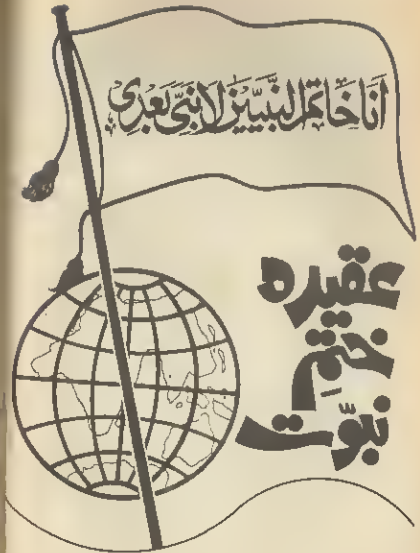 أَنَا خَاتَمُ النَّبِيِّينَ لَا نَبِيَّ بَعْدِي
عقیدہ
ختمِ
نبوّت